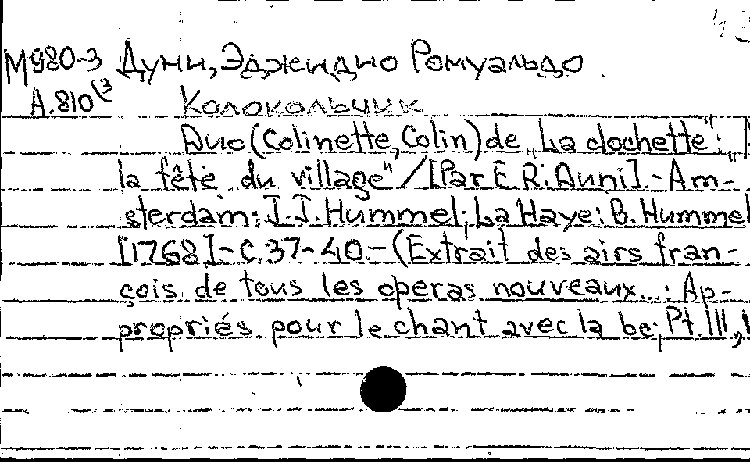 43
М980-3 Дуни, Эджидио Ромуальдо
А.810(3 Колокольчик
Duo (Colinette, Colin) de „La clochette":
la fêté du village" / [Par E. R. Duni].- Am-
sterdam: J. J. Hummel; La Haye: B. Hummel
[1768].- С. 37-40.- (Extrait des airs fran-
çois de tous les operas nouveaux...: Ap-
propriés pour le chant avec la bc; Pt. III,